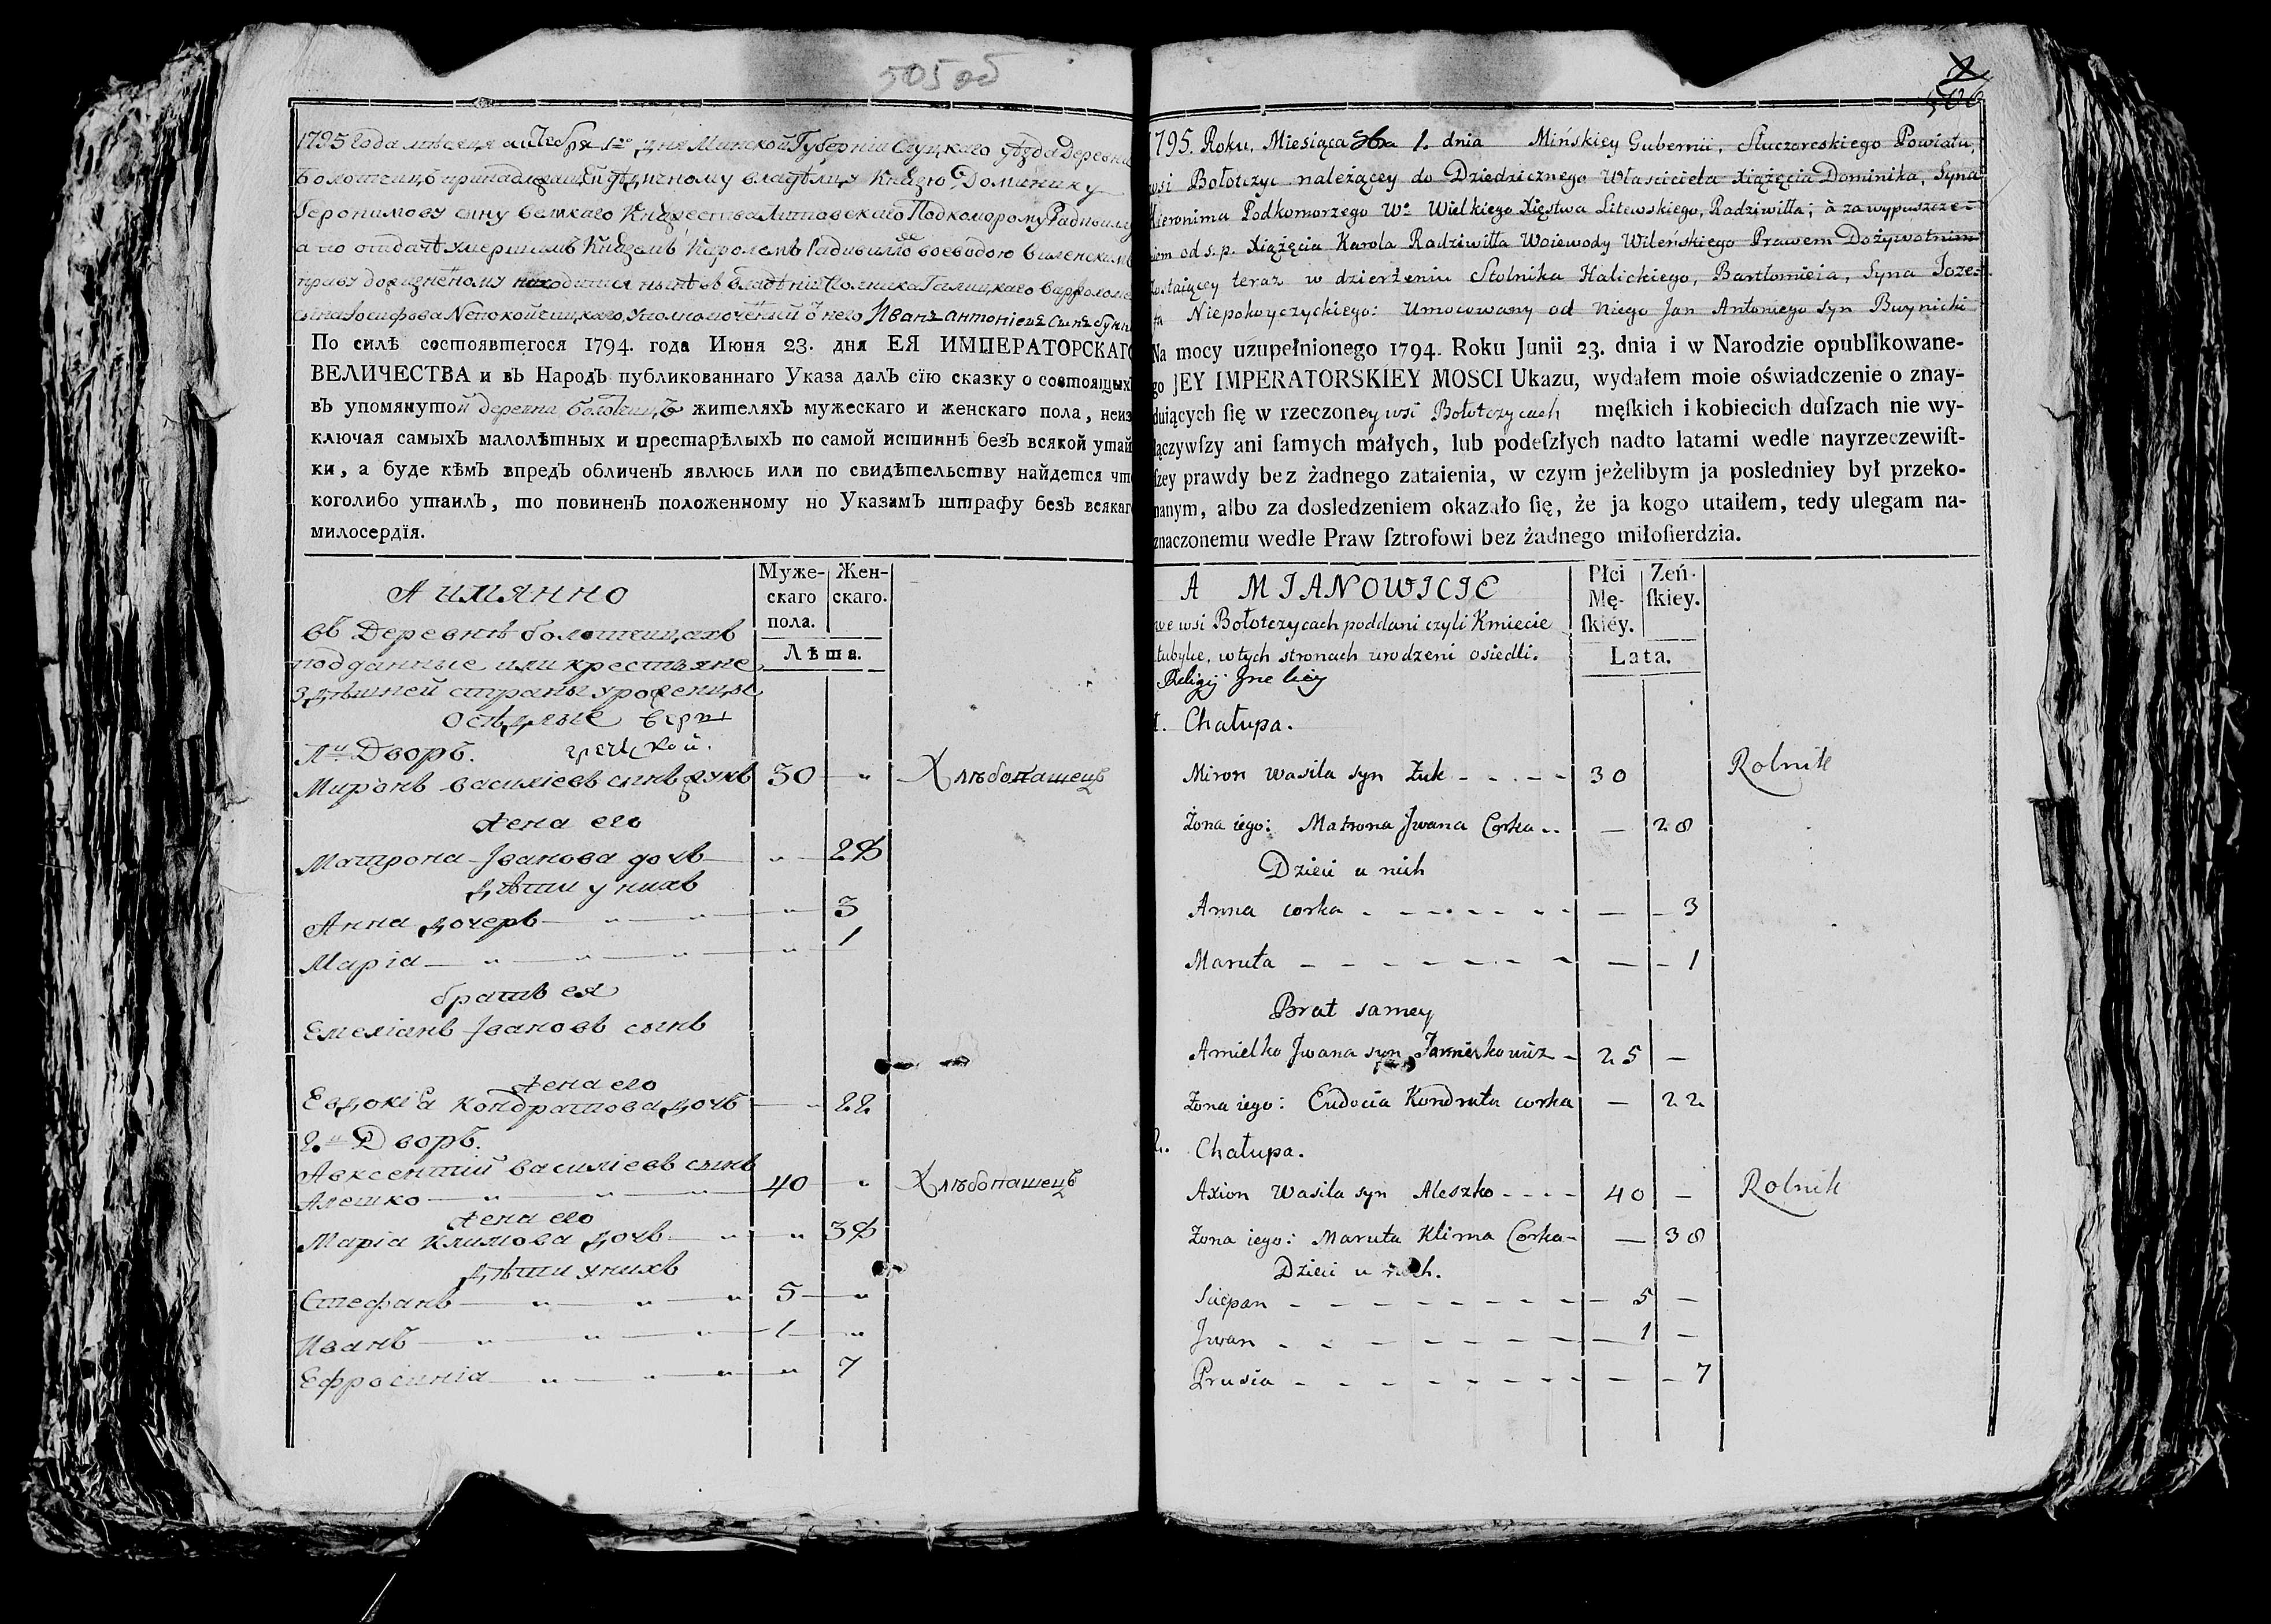 505 об
1795 года месяца октября 1го дня Минской Губернiи Слуцкаго уезда Деревни
Болотчицъ принадлежащей дѣдичному владѣлцу Князю Доминику
Iеронимову сыну великаго Княжества Литовскаго Подкоморому Радивилу
а по отдачѣ умершимъ Княземъ Каролемъ Радивиломъ воеводою виленскимъ
праву пожизненному находится нынѣ въ владѣнiи Столника Галицкаго варфоломея
сына Iосифова Непокойчицкаго, Уполномоченный отъ него Иванъ антонiевъ сынъ
По силѣ состоявшегося 1794. года Июня 23. дня ЕЯ ИМПЕРАТОРСКАГО
ВЕЛИЧЕСТВА и въ Народъ публикованнаго Указа далъ сїю сказку о состоящыхъ
въ упомянутой деревни Болотчицъ жителяхъ мужескаго и женскаго пола, неиз
ключая самыхъ малолѣтныхъ и престарѣлыхъ по самой истиннѣ безъ всякой утай
ки, а буде кѣмъ впредъ обличенъ явлюсь или по свидѣтельству найдется что
коголибо утаилъ, то повиненъ положенному по Указамъ штрафу безъ всякаго
милосердїя.
А имянно
Муже-скаго пола.
Жен-скаго.
Лѣта.
въ Деревнѣ болотчицахъ
подданные или крестьяне
здѣшней страны уроженцы
осѣдлые веры
греческой.
1й Дворъ.
Миронъ василiевъ сынъ жукъ 30 — „ — Хлѣбопашецъ
жена его
Матрона Iванова дочь „ 28
дѣти у нихъ
Анна дочерь — „ — „ — „ 3
Марiа — „ — „ — „ — „ 1
братъ ея
Емелiанъ Iвановъ сынъ
жена его
Евдокiа Кондратова дочь — „ 22
2й Дворъ.
Авксентий василiевъ сынъ
Алешко — „ — „ — „ 40 — „ Хлѣбопашецъ
жена его
Марiа Климова дочь — „ — „ 38
дѣти у нихъ
Стефанъ — „ — „ — „ 5 — „
Иванъ — „ — „ — „ 1 — „
Ефросинiа — „ — „ — „ — „ 7
506
1795. Roku, Miesiąca 8bra 1. dnia Mińskiey Gubernii, Słuczoreskiego Powiatu,
wsi Bołotczyc należącey do Dziedzicznego Własciciela Xiążęcia Dominika, Syna
Hieronima Podkomorzego Wo Wielkiego Xięstwa Litewskiego, Radziwiłła; à za wypuszcze-
niem od s. p. Xiążęcia Karola Radziwiłła Woiewody Wileńskiego Prawem Dożywotnim
zostaiącey teraz w dzierżeniu Stolnika Halickiego, Bartłomieia, Syna Joze-
fa Niepokoyczyckiego: Umocowany od niego Jan Antoniego syn Bujnicki
Na mocy uzupełnionego 1794. Roku Junii 23. dnia i w Narodzie opublikowane-
go JEY IMPERATORSKIEY MOSCI Ukazu, wydałem moie oświadczenie o znay-
duiących ſię w rzeczoney wsi Bołotczycach męſkich i kobiecich duſzach nie wy-
łączywſzy ani ſamych małych, lub podeſzłych nadto latami wedle nayrzeczewiſt-
ſzey prawdy bez żadnego zataienia, w czym jeżelibym ja posledniey był przeko-
nanym, albo za dosledzeniem okazało ſię, że ja kogo utaiłem, tedy ulegam na-
znaczonemu wedle Praw ſztrofowi bez żadnego miłoſierdzia.
A MIANOWICIE
Płci Mę-ſkiéy.
Zeń-ſkiey.
Lata.
we wsi Bołotczycach poddani czyli Kmiecie
tubylce, w tych stronach urodzeni osiedli.
Religij Greckiey
1. Chałupa.
Miron Wasila syn Żuk - - - - 30 Rolnik
Żona iego: Matrona Jwana Corka - - — 28
Dzieci u nich
Anna corka - - - - - - - — - 3
Maruta - - - - - - - — - 1
Brat samey
Amielko Jwana syn Jarmołkowicz - 25 —
Żona iego: Eudocia Kondrata corka — 22
2. Chałupa.
Axion Wasila syn Aleszko - - - - 40 — Rolnik
Żona iego: Maruta Klima Corka - — 38
Dzieci u nich.
Sciepan - - - - - - - - 5 —
Jwan - - - - - - - - 1 —
Prusia - - - - - - - - — - 7